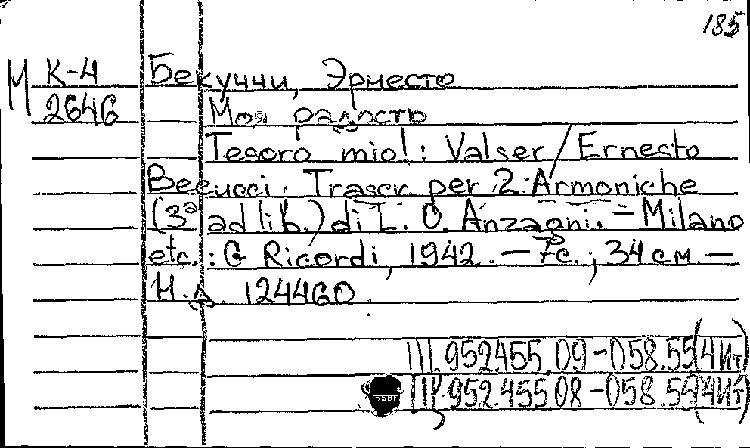 185
М К-4 Бекуччи, Эрнесто
2646 Моя радость
Tesoro mio!: Valser / Ernesto
Becucci. Trascr. per 2 Armoniche
(3ª ad lib.) di L. O. Anzagni. – Milano
etc.: G Ricordi, 1942. – 7с.; 34 см –
Н. Д. 124460.
Ш.952.455.09-058.55(4Ит)
Ш.952.455 08-058.55(4Ит)